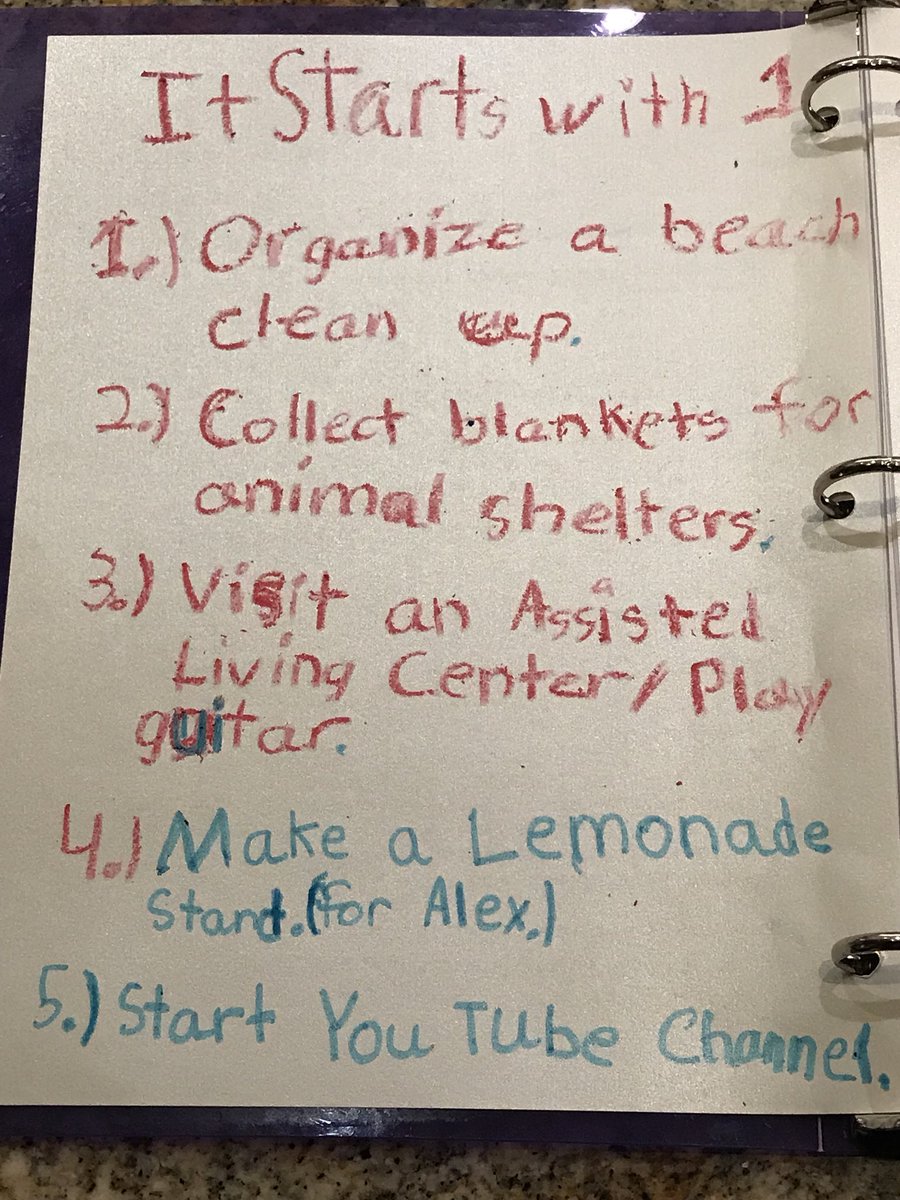 It Starts with 1
1.) Organize a beach
clean up.
2.) Collect blankets for
animal shelters.
3.) Visit an Assisted
Living Center/Play
guitar.
4.) Make a Lemonade
Stand. (for Alex.)
5.) Start You Tube Channel.